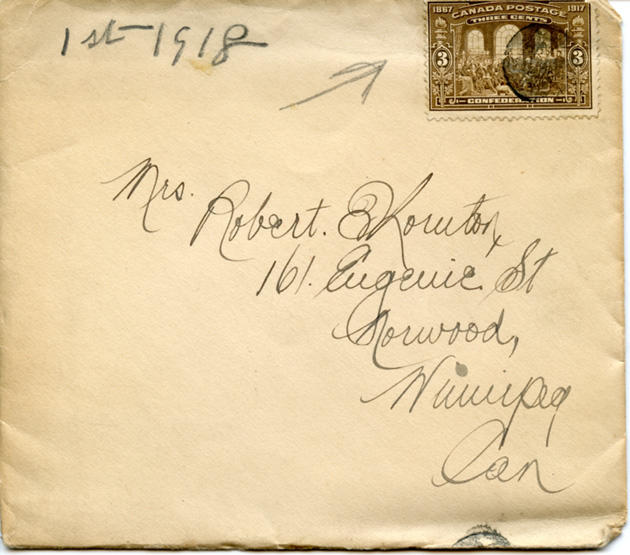 1st 1918
1867 CANADA POSTAGE 1917
THREE CENTS
3 3
CONFEDERATION
Mrs. Robert.
161. Eugenie St
Norwood,
Winnipeg
Can